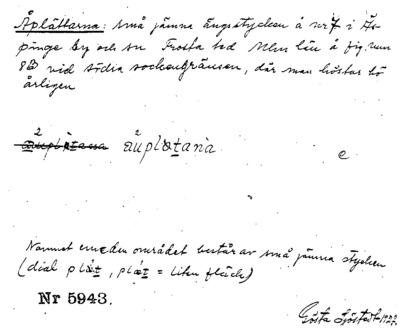 Åplättarna: små jämna ängsstycken å nr 7 i Äs-
pinge by och sn Frosta hd Mlm län å fig. num
8 vid södra sockengränsen, där man höstar hö
årligen
2
åuplätana
e
Namnet emedan området består av små jämna stycken
(dial plät, plät = liten fläck)
Nr 5943.
Gösta Sjöstedt 1927.